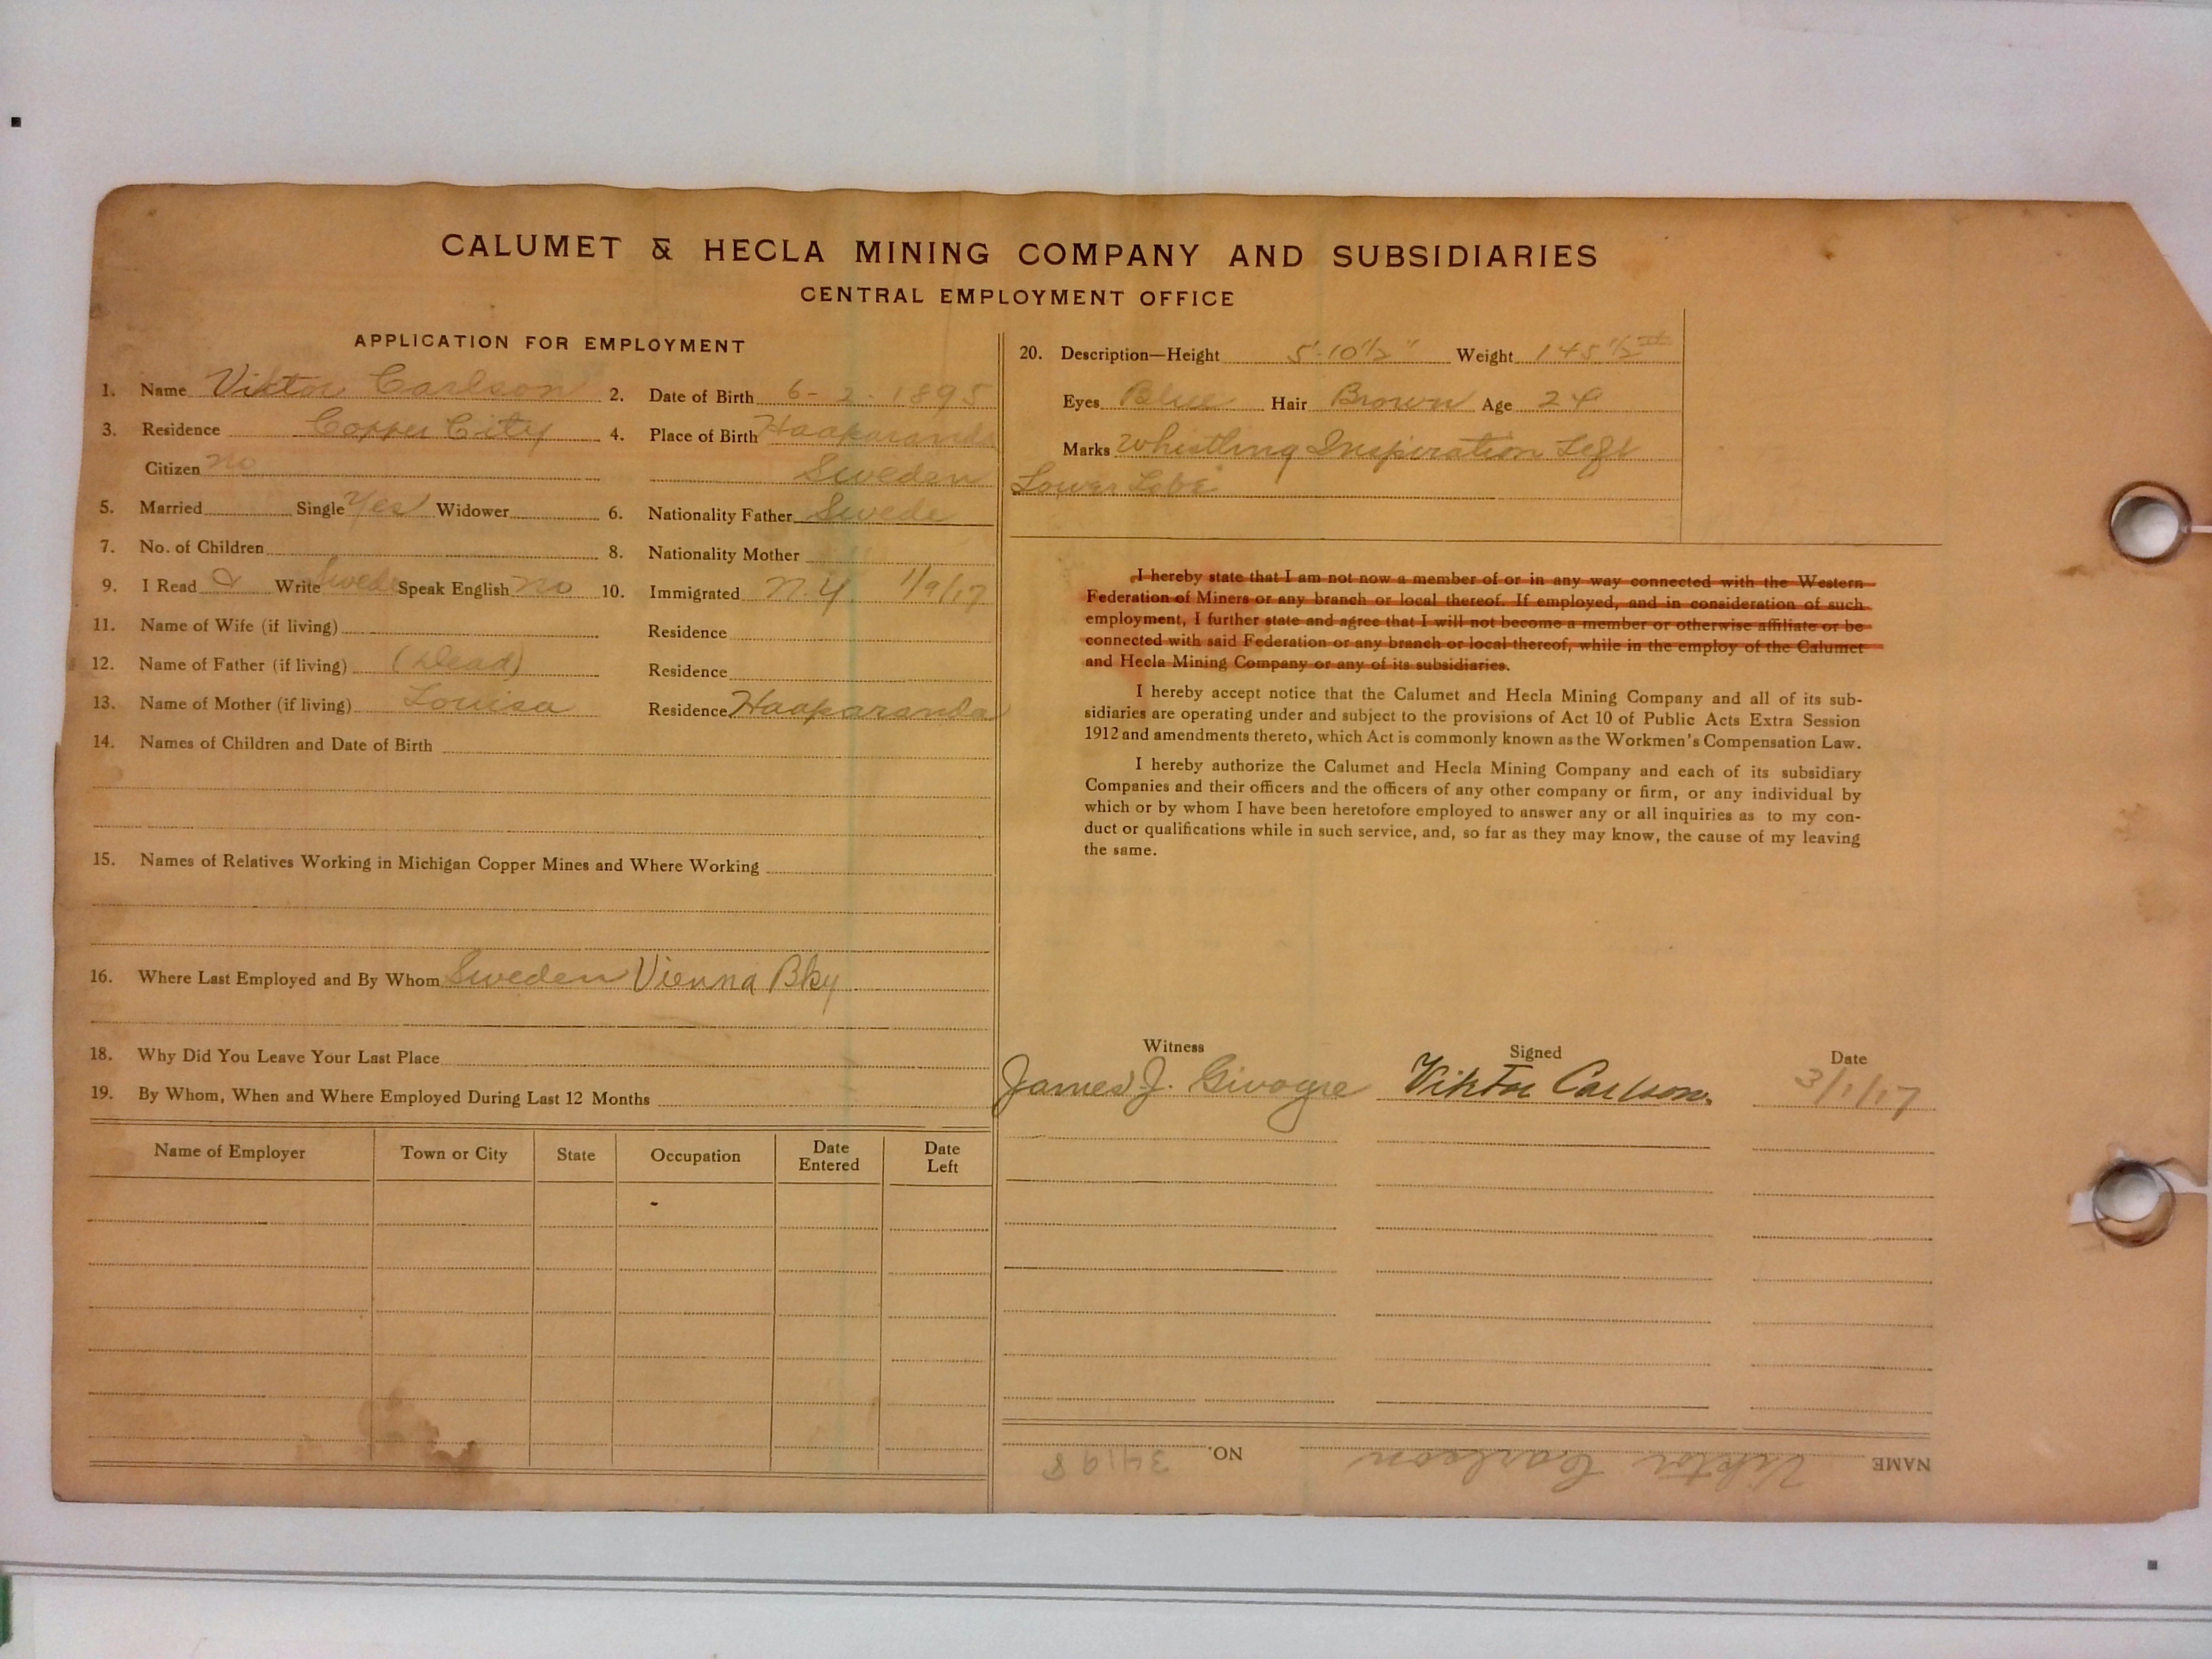 CALUMET & HECLA MINING COMPANY AND SUBSIDIARIES
CENTRAL EMPLOYMENT OFFICE
APPLICATION FOR EMPLOYMENT
1. Name Viktor Carlson 2. Date of Birth 6-2-1895
3. Residence Copper City 4. Place of Birth Haaparanda
Citizen no Sweden
5. Married Single Yes Widower 6. Nationality Father Swede
7. No. of Children 8. Nationality Mother
9. I Read & Write Swede Speak English no 10. Immigrated N.Y. 1/9/17
11. Name of Wife (if living) Residence
12. Name of Father (if living) (Dead) Residence
13. Name of Mother (if living) Louisa Residence Haaparanda
14. Names of Children and Date of Birth
15. Names of Relatives Working in Michigan Copper Mines and Where Working
16. Where Last Employed and By Whom Sweden Vienna Bky
18. Why Did You Leave Your Last Place
19. By Whom, When and Where Employed During Last 12 Months
Name of Employer Town or City State Occupation Date Entered Date Left
20. Description—Height 5'-10 1/2" Weight 145 1/2
Eyes Blue Hair Brown Age 24
Marks Whistling Inspiration Left
Lower Lobe
I hereby state that I am not now a member of or in any way connected with the Western
Federation of Miners or any branch or local thereof. If employed, and in consideration of such
employment, I further state and agree that I will not become a member or otherwise affiliate or be
connected with said Federation or any branch or local thereof, while in the employ of the Calumet
and Hecla Mining Company or any of its subsidiaries.
I hereby accept notice that the Calumet and Hecla Mining Company and all of its sub-
sidiaries are operating under and subject to the provisions of Act 10 of Public Acts Extra Session
1912 and amendments thereto, which Act is commonly known as the Workmen's Compensation Law.
I hereby authorize the Calumet and Hecla Mining Company and each of its subsidiary
Companies and their officers and the officers of any other company or firm, or any individual by
which or by whom I have been heretofore employed to answer any or all inquiries as to my con-
duct or qualifications while in such service, and, so far as they may know, the cause of my leaving
the same.
Witness Signed Date
James J. Viktor Carlson. 3/1/17
NAME Viktor Carlson NO. 34198